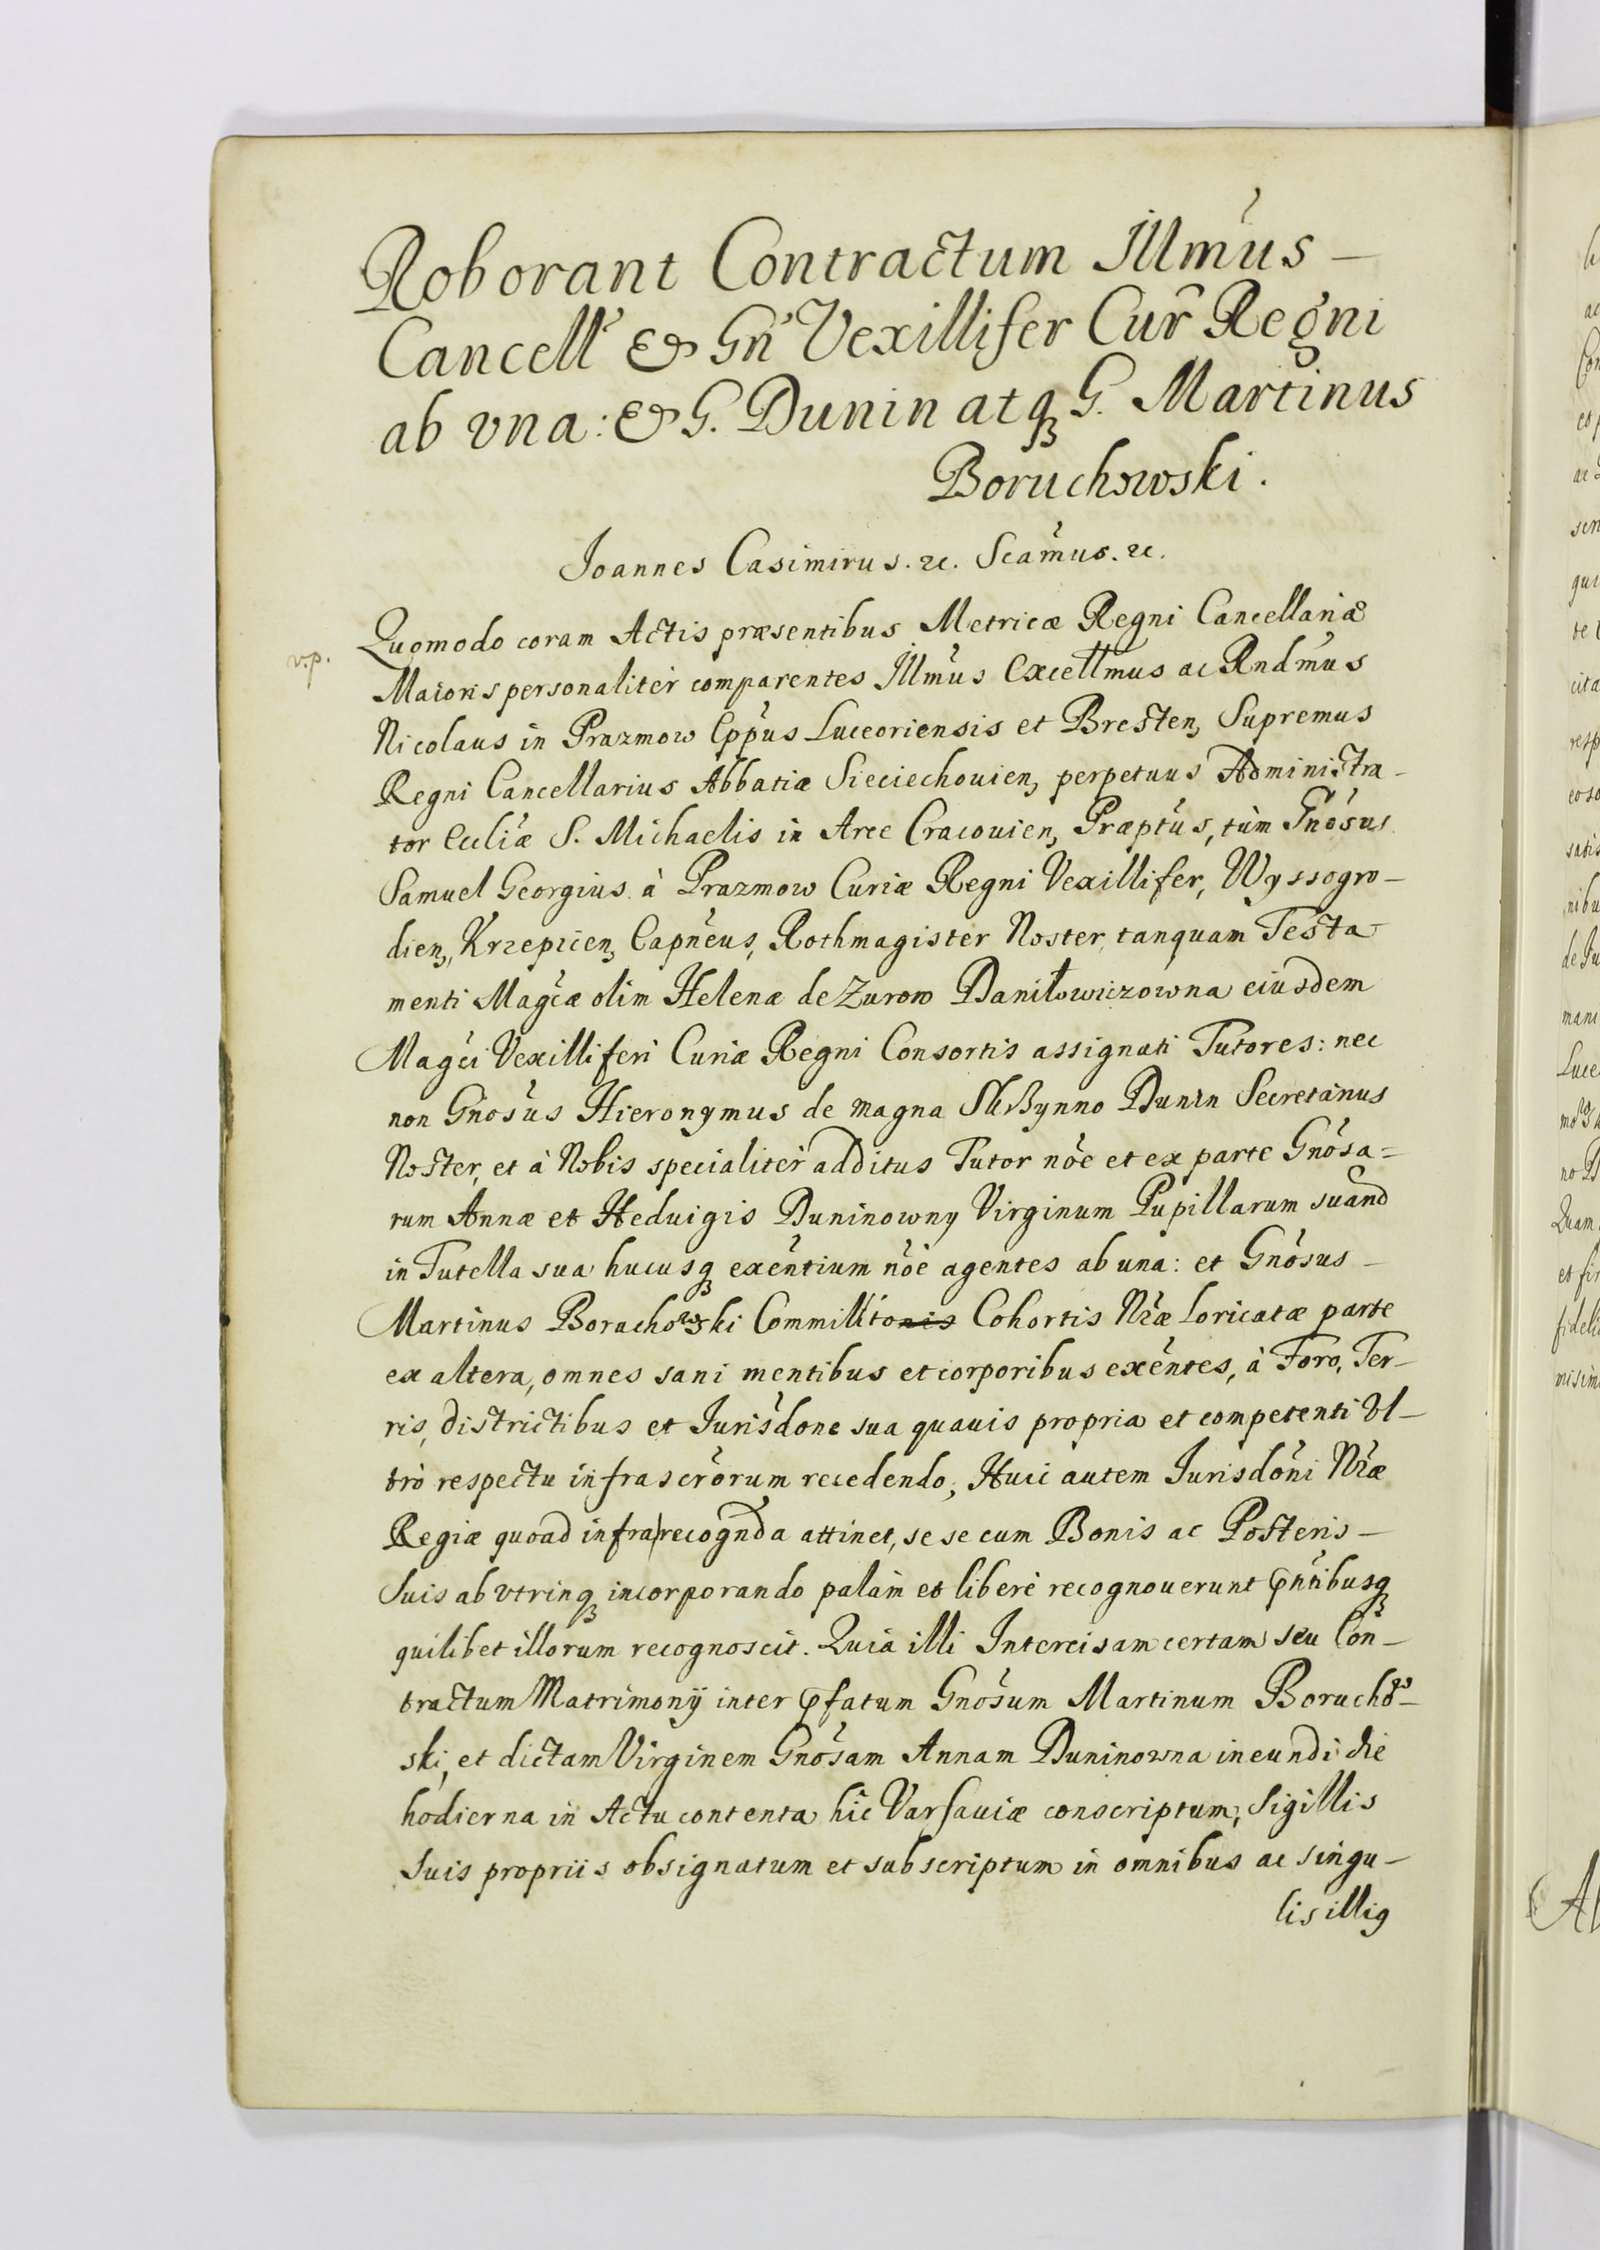 Roborant Contractum Illmus –
Cancell & Gn Vexillifer Cur Regni
ab vna: & G. Dunin atq G. Martinus
Boruchowski.
Joannes Casimirus. &c. Scamus. &c.
Quomodo coram Actis præsentibus Metricæ Regni Cancellariæ
v.p.
Maioris personaliter comparentes Illmus Excellmus ac Rndmus
Nicolaus in Prazmow Eppus Luceoriensis et Bresten, Supremus
Regni Cancellarius Abbatiæ Sieciechouien, perpetuus Administra-
tor Eccliæ S. Michaelis in Arce Cracouien, Præptus, tùm Gnosus
Samuel Georgius à Prazmow Curiæ Regni Vexillifer, Wyssogro-
dien, Krzepicen, Capneus, Rothmagister Noster, tanquam Testa-
menti Magcæ olim Helenæ de Zurow Daniłowiczowna eiusdem
Magci Vexilliferi Curiæ Regni Consortis assignati Tutores: nec
non Gnosus Hieronymus de magna Skrzynno Dunin Secretarius
Noster, et à Nobis specialiter additus Tutor nõe et ex parte Gnosa=
rum Annæ et Heduigis Duninowny Virginum Pupillarum suarū
in Tutella sua hucusq exentium nõe agentes ab una: et Gnosus –
Martinus Borachowski Commilitonis Cohortis Nræ Loricatæ parte
ex altera, omnes sani mentibus et corporibus exentes, à Foro, Ter-
ris, districtibus et Jurisdone sua quauis propria et competenti Vl-
trò respectu infrascrorum recedendo, Huic autem Jurisdoni Nræ
Regiæ quoad infra recognda attinet, se se cum Bonis ac Posteris –
Suis ab vtrinq incorporando palàm et liberè recognouerunt pntibusq
quilibet illorum recognoscit. Quià illi Intercisam certam seu Con-
tractum Matrimonij inter pfatum Gnosum Martinum Boruchow-
ski, et dictam Virginem Gnosam Annam Duninowna ineundi die
hodierna in Actu contenta hic Varsauiæ conscriptum, Sigillis
Suis propriis obsignatum et subscriptum in omnibus ac singu-
lis illig